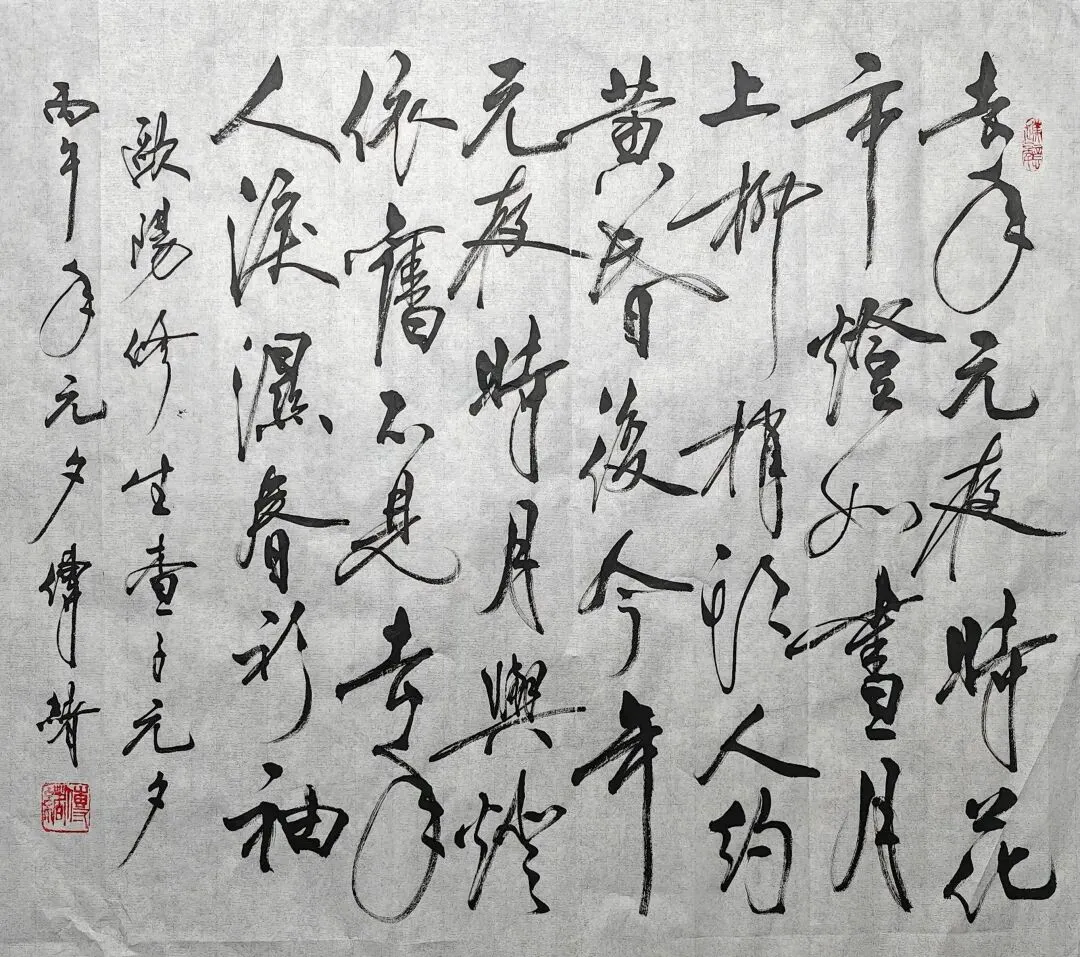 去年元夜時花
市燈如晝月
上柳梢頭人約
黄昏後今年
元夜時月與燈
依舊不見去年
人淚濕春衫袖
歐陽修生查子元夕
丙午年元夕偉